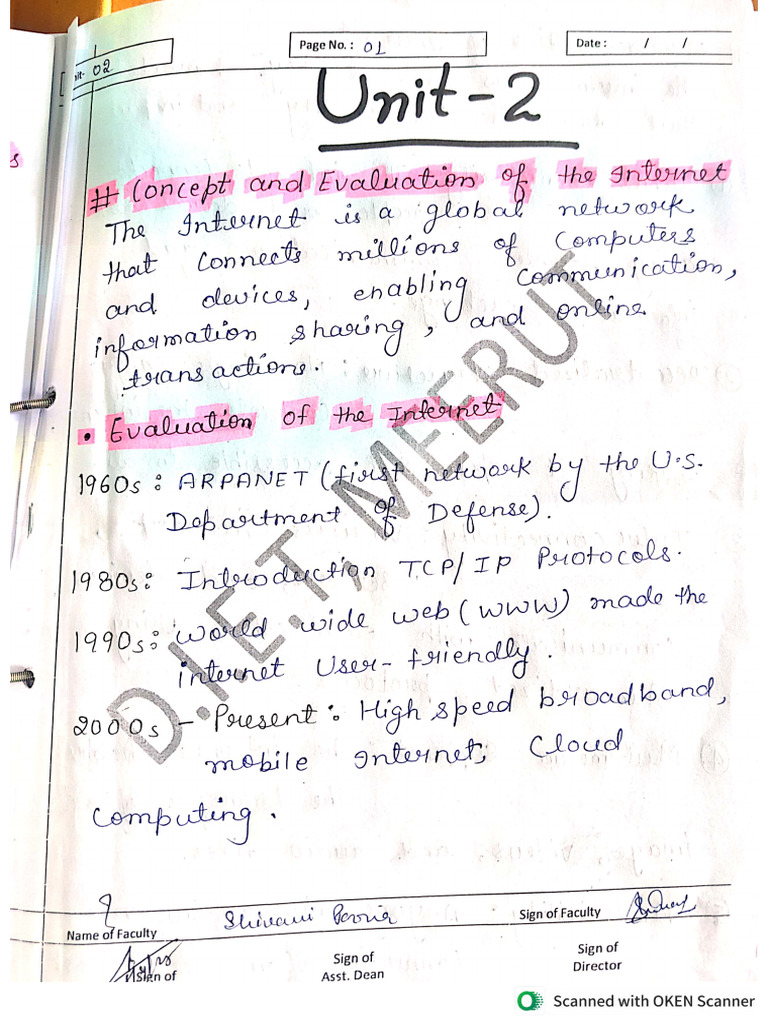 Unit- 02
Page No. : 01
Date : / /
Unit-2
# Concept and Evaluation of the Internet
The Internet is a global network
that connects millions of computers
and devices, enabling communication,
information sharing, and online
transactions.
• Evaluation of the Internet
1960s: ARPANET (first network by the U.S.
Department of Defense).
1980s: Introduction TCP/IP Protocols.
1990s: World wide web (WWW) made the
internet User-friendly.
2000s - Present: High speed broadband,
mobile Internet, Cloud
Computing.
D.I.E.T, MEERUT
Shivani
Name of Faculty
Sign of Faculty
Sign of
Sign of
Asst. Dean
Sign of
Director
Scanned with OKEN Scanner